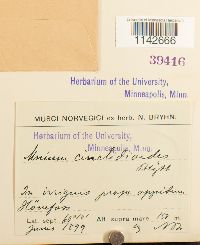 1142666
39416
Herbarium of the University,
Minneapolis, Minn.
MUSCI NORVEGICI ex herb. N. BRYHN.
Herbarium of the University,
Minneapolis, Minn.
Mnium cinclidioides
In irriguis prope oppidum
Hönefos
Lat. sept. Alt. supra mare 150 m.
Junio 1899